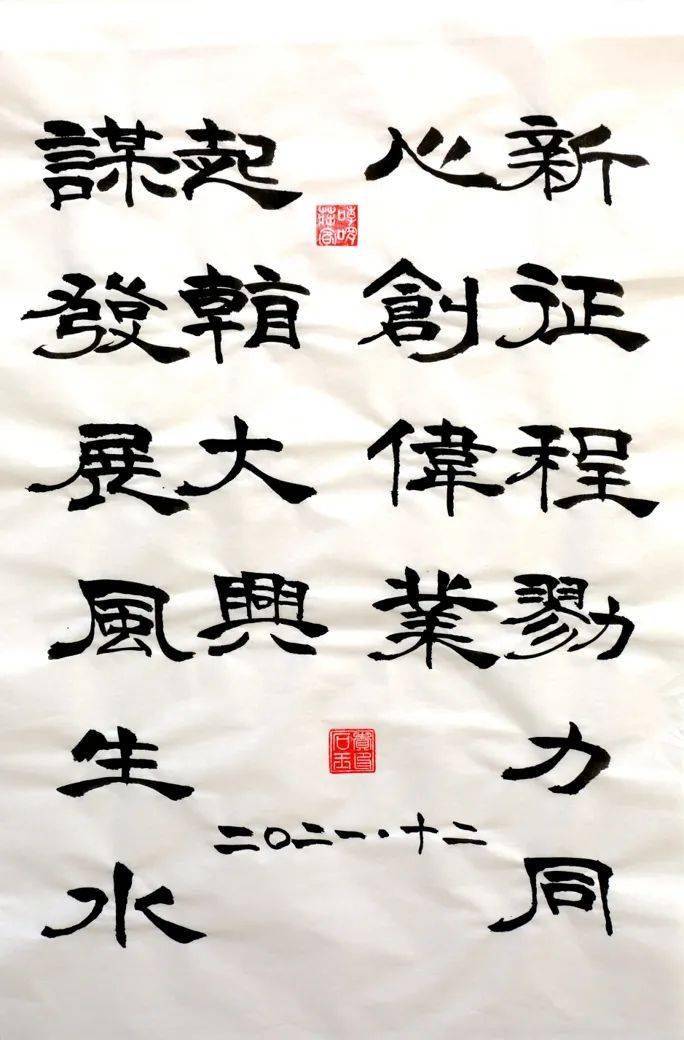 新征程勠力同
心創偉業
謀發展風生水
起大興
二〇二一·十二